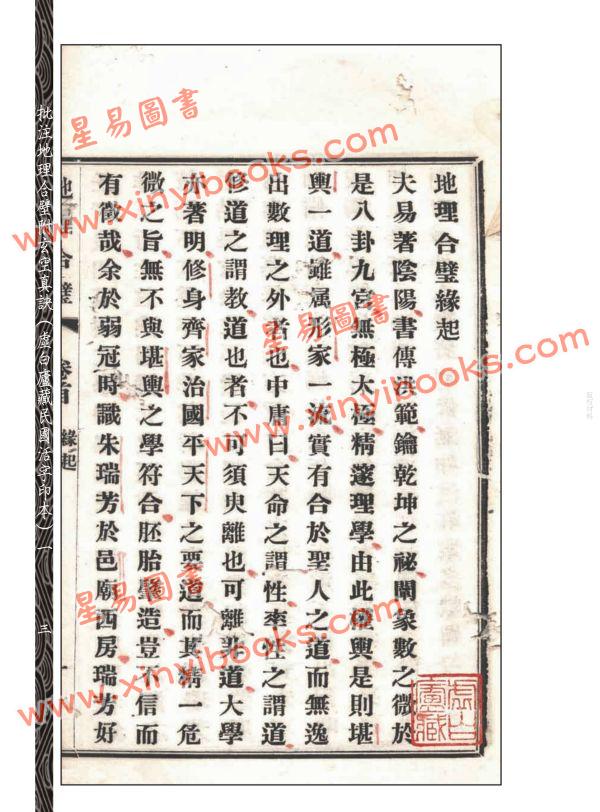 地理合璧緣起
大易著陰陽書傳洪範鑰乾坤之祕闡象數之微於
是八卦九宮無極太極精邃理學由此興是則堪
輿一道雖属形家一流實有合於聖人之道而無逸
出數理之外者也中庸曰天命之謂性率性之謂道
修道之謂教道也者不可須臾離也可離非道大學
亦著明修身齊家治國平天下之要道而其精一危
微之旨無不與堪輿之學符合胚胎造豈不信而
有徵哉余於弱冠時識朱瑞芳於邑廟西房瑞芳好
地理合璧 卷首 緣起
虛白廬藏
批注地理合璧附玄空真訣（虛白廬藏民國活字印本）一
三
星易圖書
www.xinyibooks.com
星易圖書
www.xinyibooks.com
星易圖書
www.xinyibooks.com